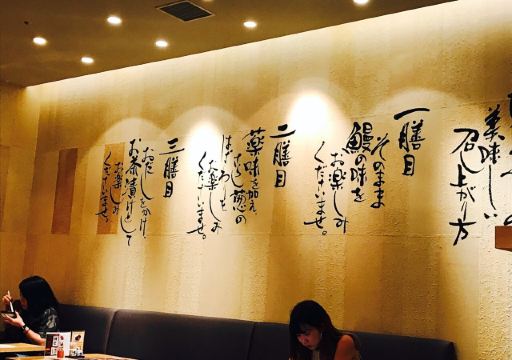 美味しい
召し上がり方
一膳目
そのまま
鰻の味を
お楽しみ
くださいませ。
二膳目
薬味を加え、
葱の
お楽しみ
くださいませ。
三膳目
おだしをかけ、
お茶漬けとして
お楽しみ
くださいませ。